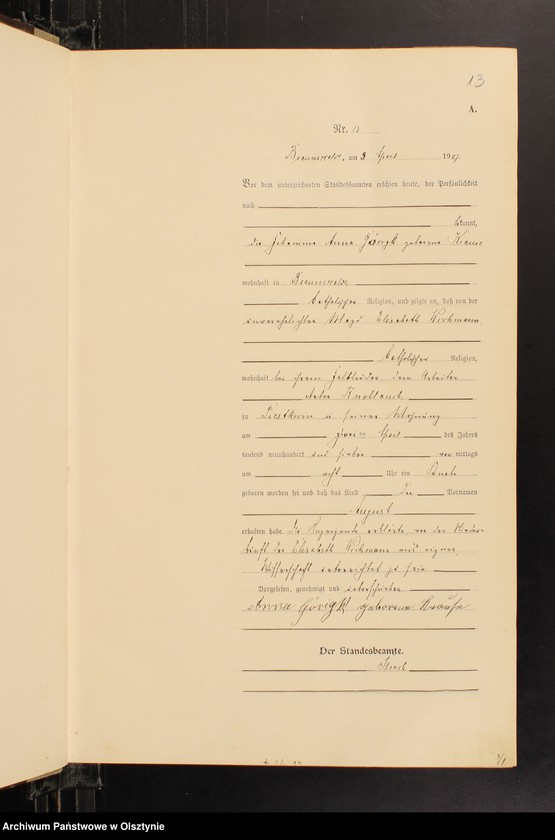 13
A.
Nr. 13
Braunswalde, am 3 April 1907
Vor dem unterzeichneten Standesbeamten erschien heute, der Persönlichkeit
nach
bekannt,
die Hebamme Anna Görigk geborene Krause
wohnhaft in Braunswalde
katholischer Religion, und zeigte an, daß von der
unverehelichten Magd Elisabeth Wichmann,
katholischer Religion,
wohnhaft bei ihrem Halbbruder, dem Arbeiter
Anton Knoblauch
zu in seiner Wohnung
am zweiten April des Jahres
tausend neunhundert und sieben vormittags
um acht Uhr ein Knabe
geboren worden sei und daß das Kind den Vornamen
August
erhalten habe. Die erklärte, von der Nieder-
kunft der Elisabeth Wichmann aus eigener
Wissenschaft unterrichtet zu sein
Vorgelesen, genehmigt und unterschrieben
Anna Görigk geborene Krause
Der Standesbeamte.
Archiwum Państwowe w Olsztynie